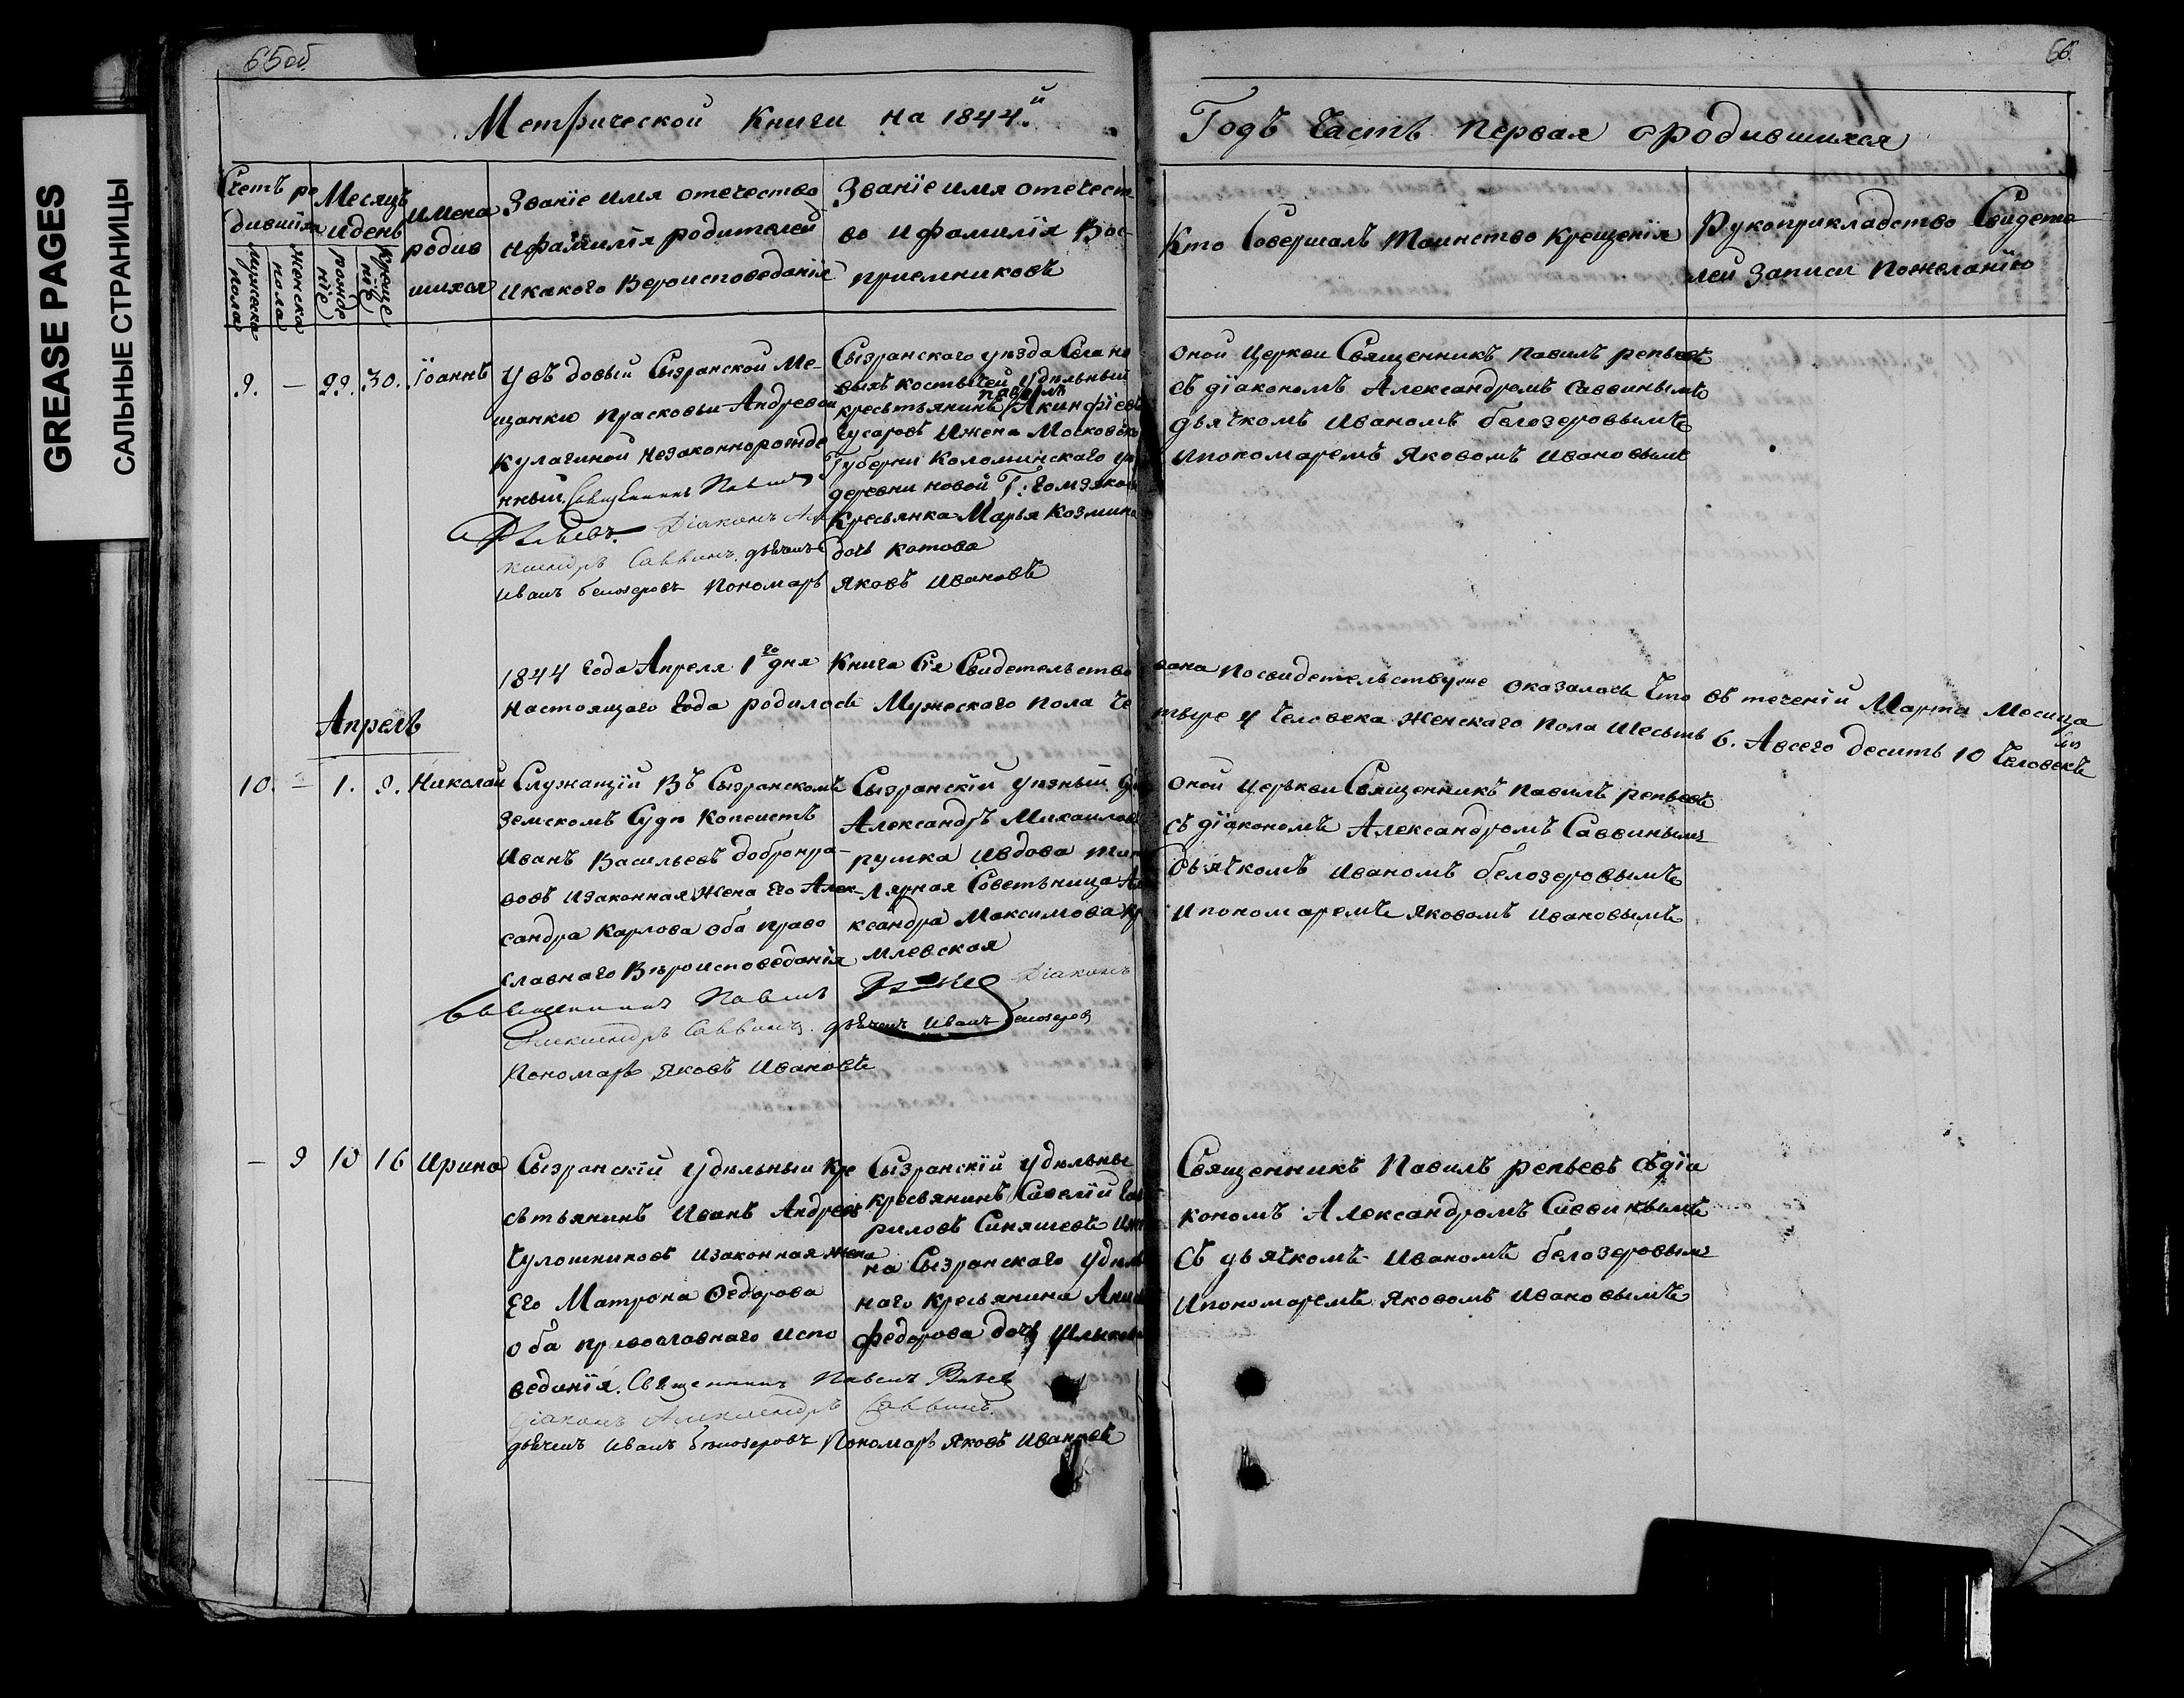 GREASE PAGES
САЛЬНЫЕ СТРАНИЦЫ
65 об.
66.
Метрической Книги на 1844.й
Годъ Часть первая ородившихся
Счетъ ро
дившихся
мужеска
пола
женска
пола
Месяцъ
идень
рожде
нïе
креще
нïе
имена
родив
шихся
Званïе имя отечество
ифамилïя родителей
икакого Вероисповеданïя
Званïе имя отечест
во ифамилïя Вос-
приемниковъ
Кто Совершалъ таинство Крещенïя
Рукоприкладство Свидете
лей записи пожеланïю
9. — 29. 30. Іоаннъ
Увъ довый Сызранской Ме-
щанки Прасковьи Андреевой
Кулагиной незаконнорожде
нный. Священникъ Павилъ
Репьевъ. Дïаконъ Але
ксандръ Саввинъ. дьячекъ
Иванъ Белозеровъ Пономарь Яковъ Ивановъ
Сызранского уезда Села но
выхъ костычей удельный
павелъ
кресьтьянинъ Акинфïевъ
Гусаровъ Ижена Московско
Губерни Коломинского
деревни новой
Кресьянка Марья Козмина
дочь котова
оной Церкви Священникъ Павилъ репьевъ
съ дïакономъ Александромъ Саввинымъ
дьячкомъ Иваномъ белозеровымъ
Ипономаремъ Яковомъ Ивановымъ
1844 года Апреля 1го дня Книга Сïя Свидетельство вана Посвидетельствуние оказалось Что въ теченïи Марта Месица
настоящаго года родилосъ Мужескаго пола че тыре 4 Человека Женскаго пола Шесьть 6. Авсего десить 10 Человекъ
Апрель
10. — 1. 9. Николай
Служащïй Въ Сызранскомъ
Земскомъ Суде Копеистъ
Иванъ Васильевъ добронра-
вовъ Изаконная Жена Его Алек-
сандра Карлова оба право
славнаго Вероисповеданïя
Священникъ Павилъ Репьев Дïаконъ
Александръ Саввинъ. дьячекъ Иванъ Белозеровъ
Пономарь Яковъ Ивановъ
Сызранскïй уезный
Александръ Михаилов
рушка Ивдова тит
лярная Советьница Але
ксандра Максимова
млевская
оной церькви Священникъ Павилъ репьевъ
съ дïакономъ Александромъ Саввинымъ
Дьячкомъ Иваномъ белозеровымъ
Ипономаремъ Яковомъ Ивановымъ
— 9 10 16 Ирина
Сызранскïй удельный Кре
сьтьянинъ Иванъ Андреевъ
Чулошниковъ изаконная жена
Его Матрона Федорова
оба православнаго испо
веданïя. Священникъ Павелъ Репьев
дïаконъ Александръ Саввинъ.
дьячекъ Иванъ Белозеровъ Пономарь Яковъ Ивановъ
Сызранскïй удельны
кресьянинъ Савелïй Гав
риловъ Синяшевъ Иже
на Сызранскаго удель
наго кресьянина
федорова дочь
Священникъ Павилъ репьевъ съдïа
кономъ Александромъ Саввинымъ
Съ дьячкомъ Иваномъ белозеровымъ
Ипономаремъ Яковомъ Ивановымъ